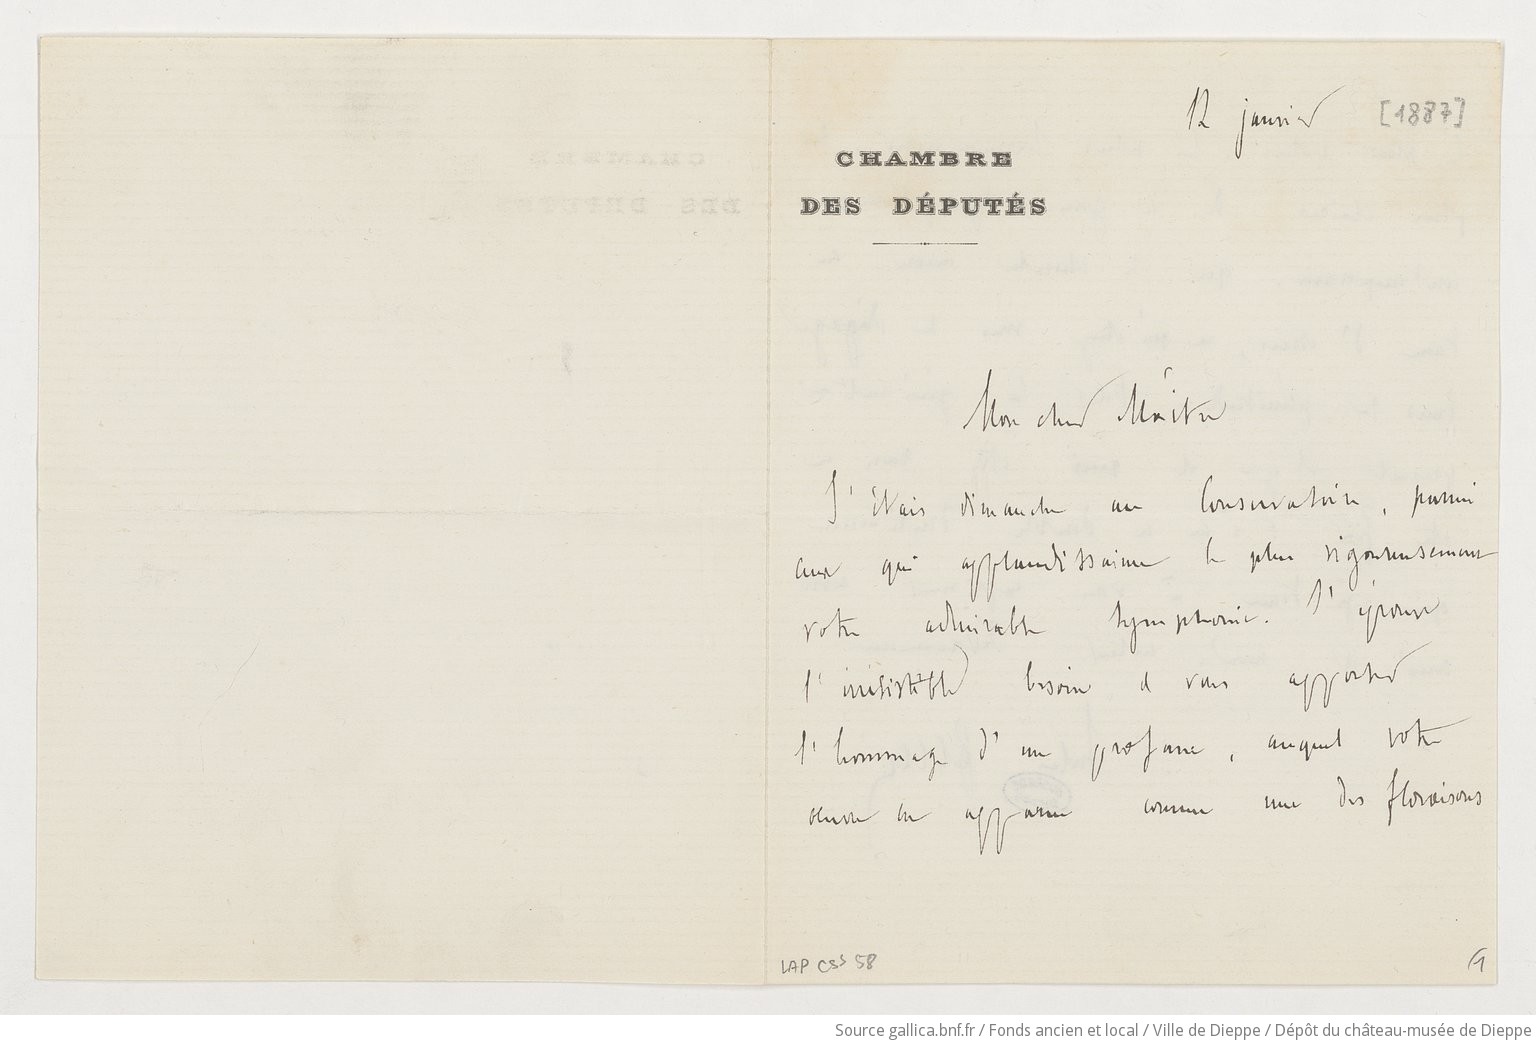 12 janvier [1887]
CHAMBRE
DES DÉPUTÉS
Mon cher Maître
J'étais dimanche au Conservatoire, parmi
ceux qui applaudissaient le plus vigoureusement
votre admirable symphonie. J'éprouve
l'irrésistible besoin de vous apporter
l'hommage d'un profane, auquel votre
œuvre est apparue comme une des floraisons
LAP CSS 58
1
Source gallica.bnf.fr / Fonds ancien et local / Ville de Dieppe / Dépôt du château-musée de Dieppe